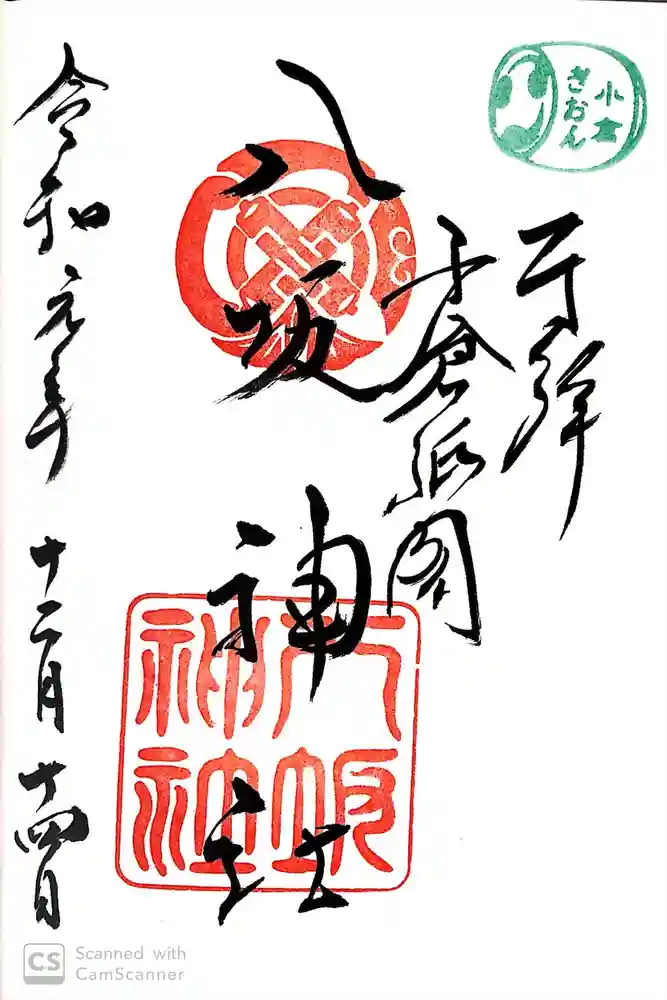 小倉
ぎおん
奉拝
小倉祇園
八坂神社
八坂
神社
令和元年 十二月 十四日
CS
Scanned with
CamScanner